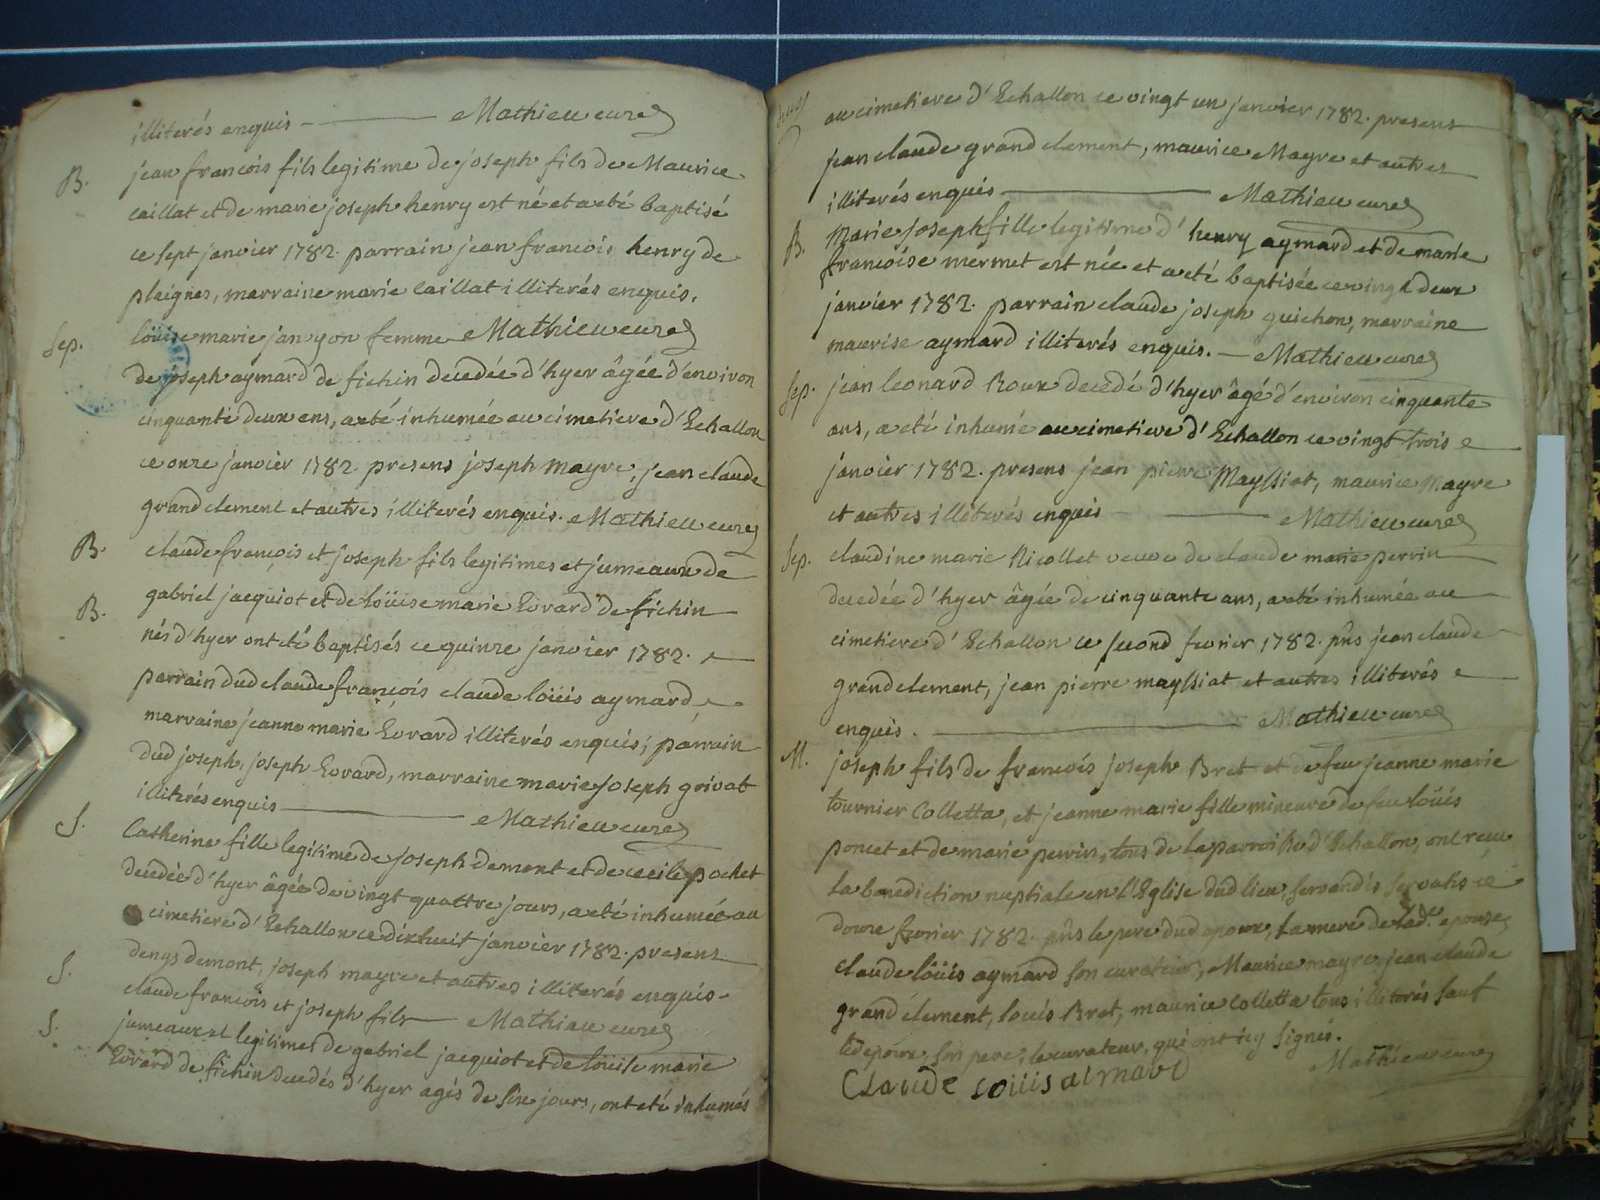 illiterés enquis — Mathieu curé
B. jean francois fils legitime de joseph fils de Maurice
caillat et de marie joseph henry est né et a eté baptisé
ce sept janvier 1782. parrain jean francois henry de
plaignes, marraine marie caillat illiterés enquis.
Sep. loüise marie jan yon femme Mathieu curé
de joseph aymard de fichin decedée d'hyer âgée d'environ
cinquante deux ans, a eté inhumée au cimetiere d'Echallon
ce onze janvier 1782 presens joseph mayre, jean claude
grand clement et autres illiterés enquis. Mathieu curé
B. claude françois et joseph fils legitimes et jumeaux de
B. gabriel jacquiot et de loüise marie Evrard de fichin
nés d'hyer ont eté baptisés ce quinze janvier 1782.
parrain dud claude françois claude loüis aymard
marraine jeanne marie Evrard illiterés enquis; parrain
dud joseph, joseph Evrard, marraine marie joseph grivat
illiterés enquis — Mathieu curé
S. Catherine fille legitime de joseph demont et de cecile pochet
decedée d'hyer âgée de vingt quattre jours, a eté inhumée au
cimetiere d'Echallon ce dixhuit janvier 1782. presens
denys demont, joseph mayre et autres illiterés enquis.
S. claude françois et joseph fils — Mathieu curé
S. jumeaux et legitimes de gabriel jacquiot et de loüise marie
Evrard de fichin decedés d'hyer agés de six jours, ont eté inhumés
au cimetiere d'Echallon ce vingt un janvier 1782. presens
jean claude grand clement, maurice Mayre et autres
illiterés enquis — Mathieu curé
B. Marie joseph fille legitime d'henry aymard et de marie
francoise mermet est née et a eté baptisée ce vingt deux
janvier 1782. parrain claude joseph guichon, marraine
maurise aymard illiterés enquis. — Mathieu curé
Sep. jean leonard Roux decedé d'hyer âgé d'environ cinquante
ans, a eté inhumé au cimetiere d'Echallon ce vingt trois
janvier 1782. presens jean pierre Mayssiat, maurice Mayre
et autres illiterés enquis — Mathieu curé
Sep. claudine marie Nicollet veuve de claude marie perrin
decedée d'hyer âgée de cinquante ans, a eté inhumée au
cimetiere d'Echallon ce second fevrier 1782. pñs jean claude
grand clement, jean pierre mayssiat et autres illiterés
enquis. — Mathieu curé
M. joseph fils de francois joseph Bret et de feu jeanne marie
tournier Colletta, et jeanne marie fille mineure de feu loüis
poncet et de marie perrin, tous de la parroisse d'Echallon, ont reçu
la benediction nuptiale en l'Eglise dud lieu, servandis servatis ce
douze fevrier 1782. pñs le pere dud epoux, la mere de lad.e epouse,
claude loüis aymard son curateur, Maurice mayre, jean claude
grand clement, loüis Bret, maurice Colletta tous illiterés sauf
led epoux, son pere, le curateur, qui ont icy signés.
Claude loiiis aimard Mathieu curé